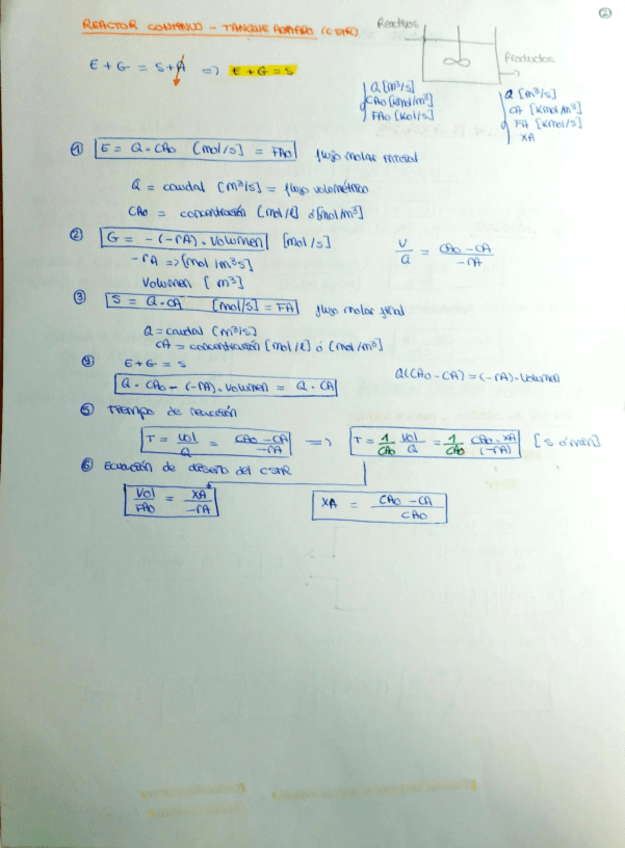 ②
REACTOR CONTINUO - TANQUE AGITADO (CSTR)
Reactivos
Productos
E + G = S + A => E + G = S
Q [m³/s]
CAo [kmol/m³]
FAo [Kol/s]
Q [m³/s]
CA [Kmol/m³]
FA [Kmol/s]
XA
① E = Q · CAo [mol/s] = FAo flujo molar inicial
Q = caudal [m³/s] = flujo volumétrico
CAo = concentración [mol/l] ó [mol/m³]
② G = - (-rA) · Volumen [mol/s]
-rA => [mol/m³s]
Volumen [m³]
V/Q = CAo - CA / -rA
③ S = Q · CA [mol/s] = FA flujo molar final
Q = caudal [m³/s]
CA = concentración [mol/l] ó [mol/m³]
④ E + G = S
Q · CAo - (-rA) · Volumen = Q · CA
Q(CAo - CA) = (-rA) · Volumen
⑤ Tiempo de reacción
T = Vol/Q = CAo - CA / -rA => T = 1/CAo Vol/Q = 1/CAo CAo · XA / (-rA) [s ó min]
⑥ Ecuación de diseño del CSTR
Vol/FAo = XA / -rA
XA = CAo - CA / CAo